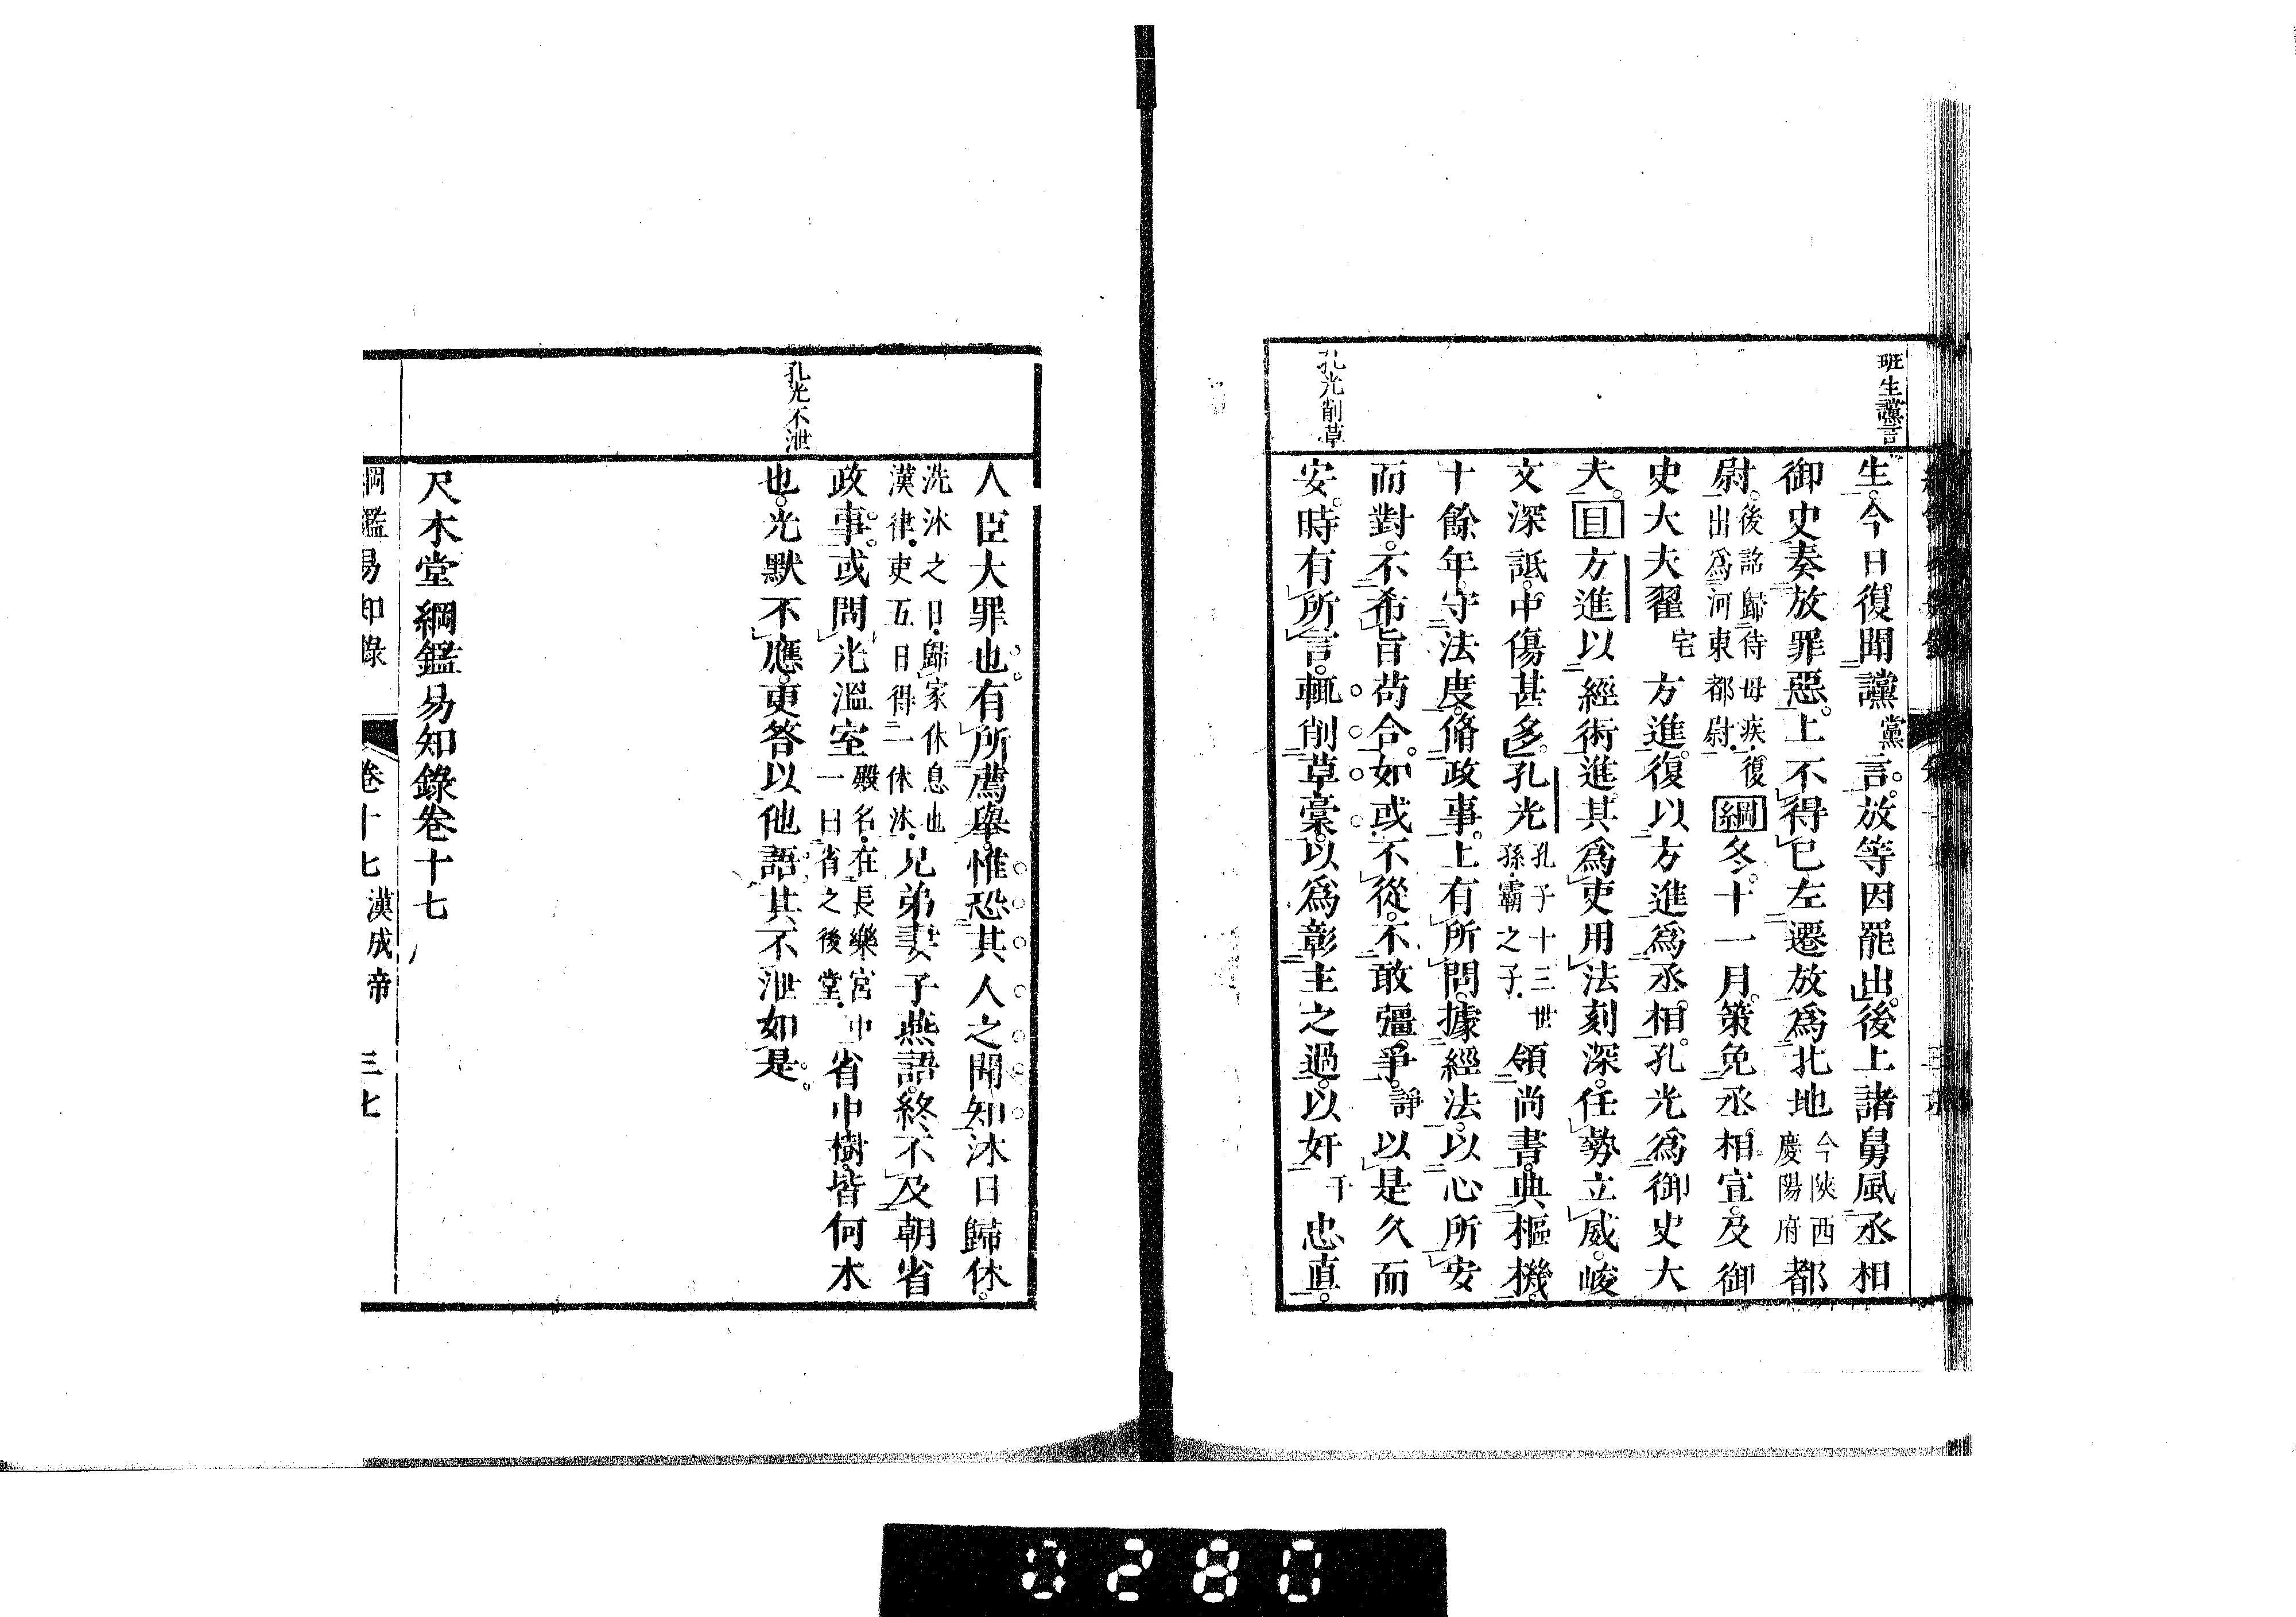 班生讜言
生今日復聞讜黨言放等因罷出後上諸舅風丞相
御史奏放罪惡上不得已左遷放爲北地今陝西慶陽府都
尉後詔歸侍母疾復出爲河東都尉綱冬十一月策免丞相宣及御
史大夫翟宅方進復以方進爲丞相孔光爲御史大
夫目方進以經術進其爲吏用法刻深任勢立威峻
文深詆中傷甚多孔光孔子十三世孫霸之子領尚書典樞機
十餘年守法度脩政事上有所問據經法以心所安
而對不希旨苟合如或不從不敢彊爭諍以是久而
孔光削草
安時有所言輒削草藁以爲彰主之過以奸干忠直
人臣大罪也有所薦舉惟恐其人之聞知沐日歸休
洗沐之日歸家休息也漢律吏五日得一休沐兄弟妻子燕語終不及朝省
政事或問光溫室殿名在長樂宮中一曰省之後堂省中樹皆何木
孔光不泄
也光默不應更答以他語其不泄如是
尺木堂綱鑑易知錄卷十七
綱鑑易知錄 卷十七 漢成帝 三七
0280